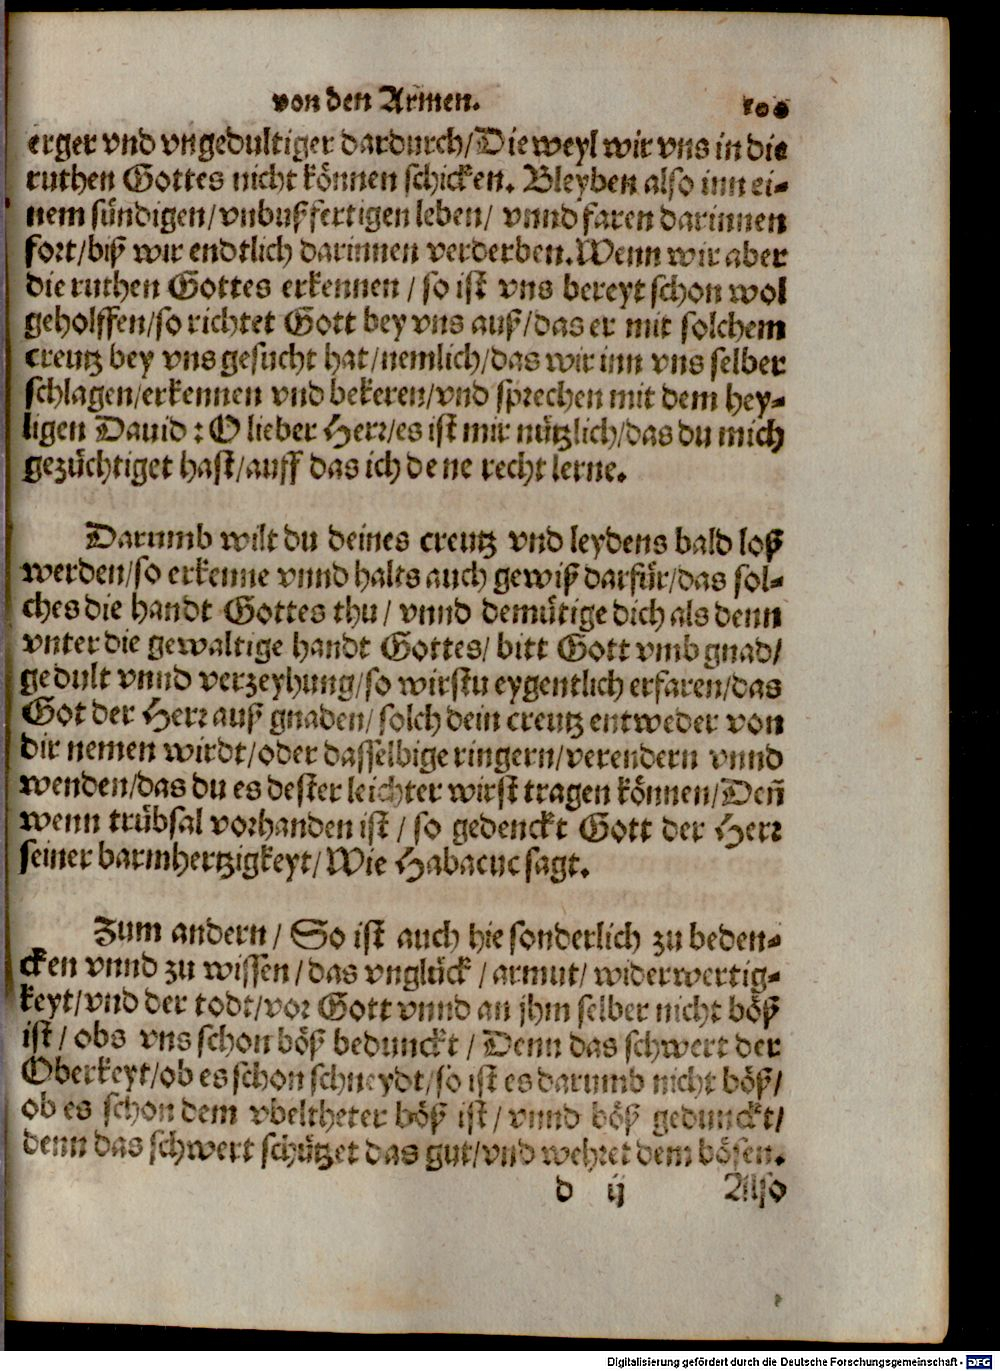 von den Armen. 100
erger vnd vngedultiger dardurch/Die weyl wir vns in die
ruthen Gottes nicht können schicken. Bleyben also inn ei-
nem sündigen/vnbußfertigen leben/ vnnd faren darinnen
fort/biß wir endtlich darinnen verderben. Wenn wir aber
die ruthen Gottes erkennen / so ist vns bereyt schon wol
geholffen/so richtet Gott bey vns auß/das er mit solchem
creutz bey vns gesucht hat/nemlich/das wir inn vns selber
schlagen/erkennen vnd bekeren/vnd sprechen mit dem hey-
ligen Dauid : O lieber Herr/es ist mir nützlich/das du mich
gezüchtiget hast/auff das ich de ne recht lerne.
Darumb wilt du deines creutz vnd leydens bald loß
werden/so erkenne vnnd halts auch gewiß darfür/das sol-
ches die handt Gottes thu/ vnnd demütige dich als denn
vnter die gewaltige handt Gottes/ bitt Gott vmb gnad/
gedult vnnd verzeyhung/so wirstu eygentlich erfaren/das
Got der Herr auß gnaden/ solch dein creutz entweder von
dir nemen wirdt/oder dasselbige ringern/verendern vnnd
wenden/das du es dester leichter wirst tragen können/Deñ
wenn trübsal vorhanden ist / so gedenckt Gott der Herr
seiner barmhertzigkeyt/Wie Habacuc sagt.
Zum andern / So ist auch hie sonderlich zu beden-
cken vnnd zu wissen / das vnglück / armut/ widerwertig-
keyt/vnd der todt/vor Gott vnnd an jhm selber nicht böß
ist / obs vns schon böß bedunckt / Denn das schwert der
Oberkeyt/ob es schon schneydt/so ist es darumb nicht böß/
ob es schon dem vbeltheter böß ist/ vnnd böß gedunckt/
denn das schwert schützet das gut/vnd wehret dem bösen.
d ij Also
Digitalisierung gefördert durch die Deutsche Forschungsgemeinschaft - DFG